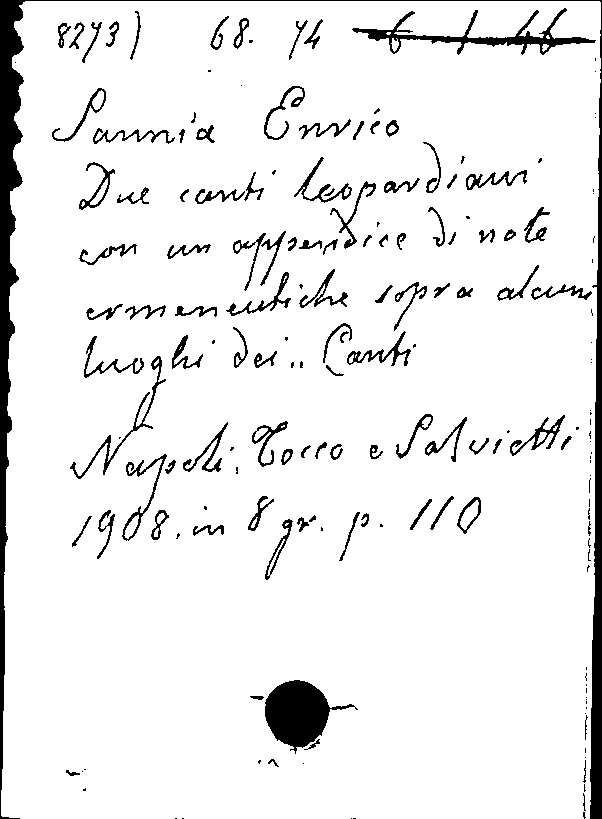 8273) 68. 74 6 1 46
Sannia Enrico
Due canti leopardiani
con un appendice di note
ermeneutiche sopra alcuni
luoghi dei „ Canti
Napoli, Tocco e Salvietti
1908. in 8 gr. p. 110